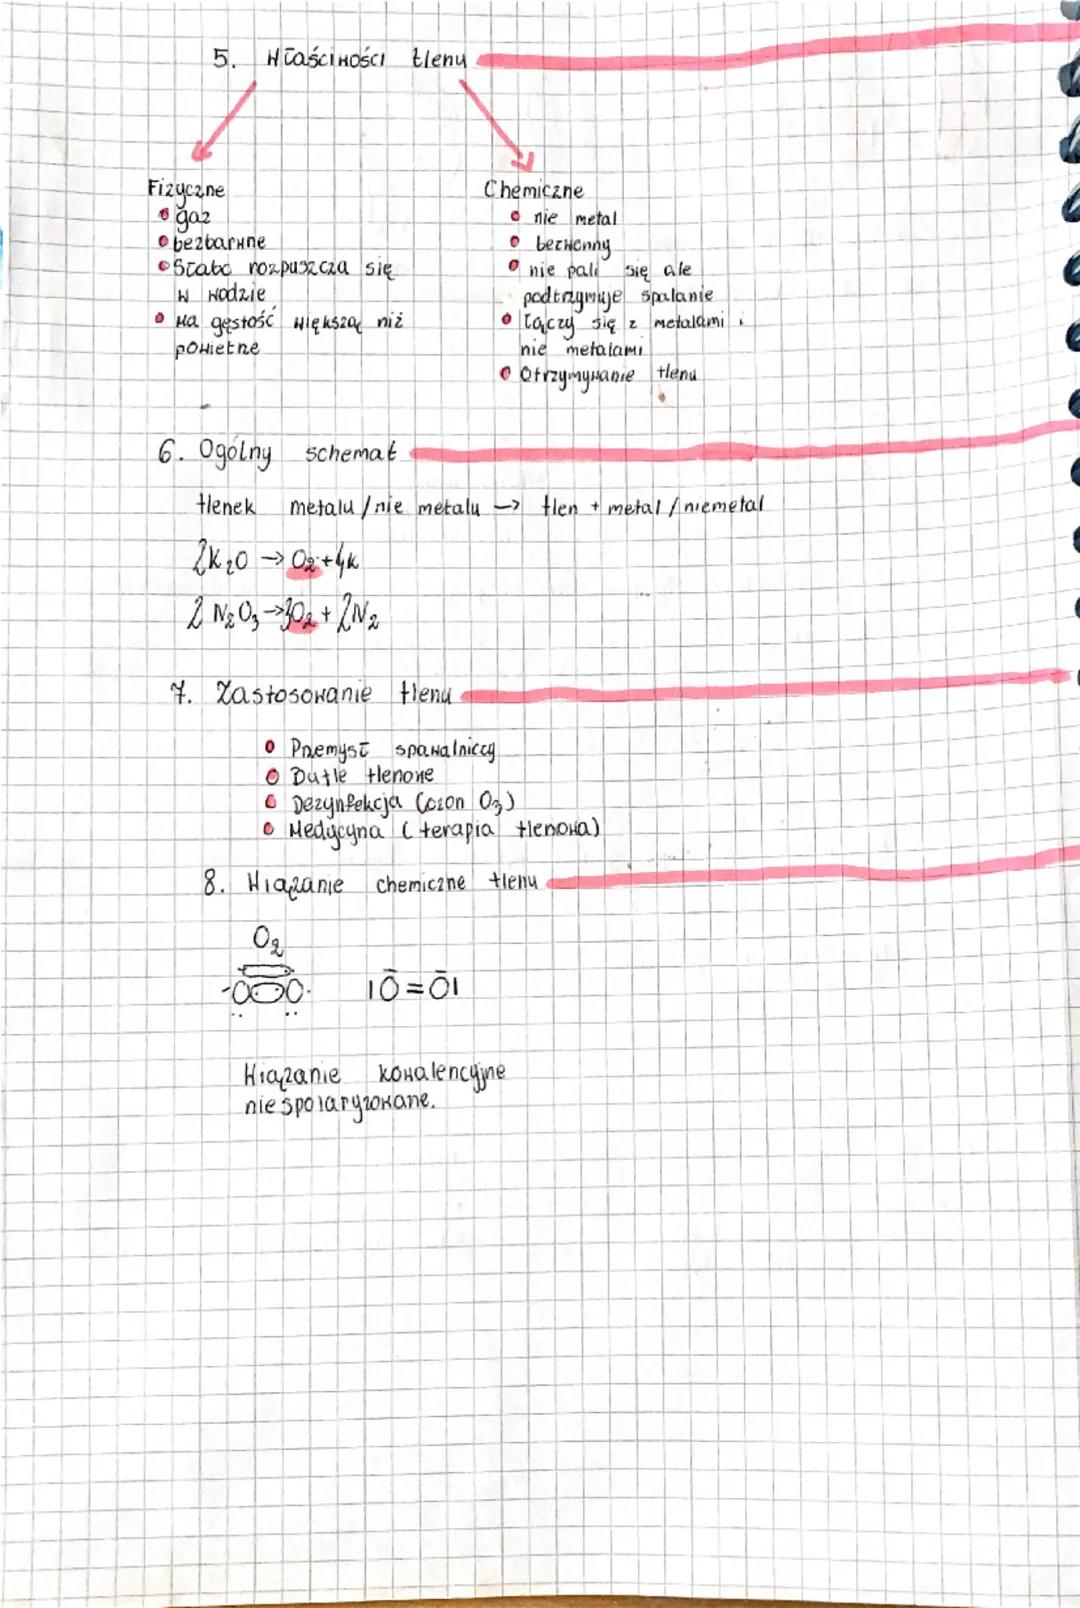 5. Właściwości tlenu
Fizyczne
gaz
bezbarwne
Słabo rozpuszcza się
w wodzie
Ma gęstość większą niż
powietrze
Chemiczne
nie metal
bezwonny
nie pali się ale
podtrzymuje spalanie
łączy się z metalami i
nie metalami
Otrzymywanie tlenu
6. Ogólny schemat
tlenek metalu / nie metalu → tlen + metal / niemetal
2K₂O → O₂ + 4K
2 N₂O₃ → 3O₂ + 2N₂
7. Zastosowanie tlenu
Przemysł spawalniczy
Butle tlenowe
Dezynfekcja (ozon O₃)
Medycyna (terapia tlenowa)
8. Wiązanie chemiczne tlenu
O₂
|Ō=Ō|
Wiązanie kowalencyjne
niespolaryzowane.